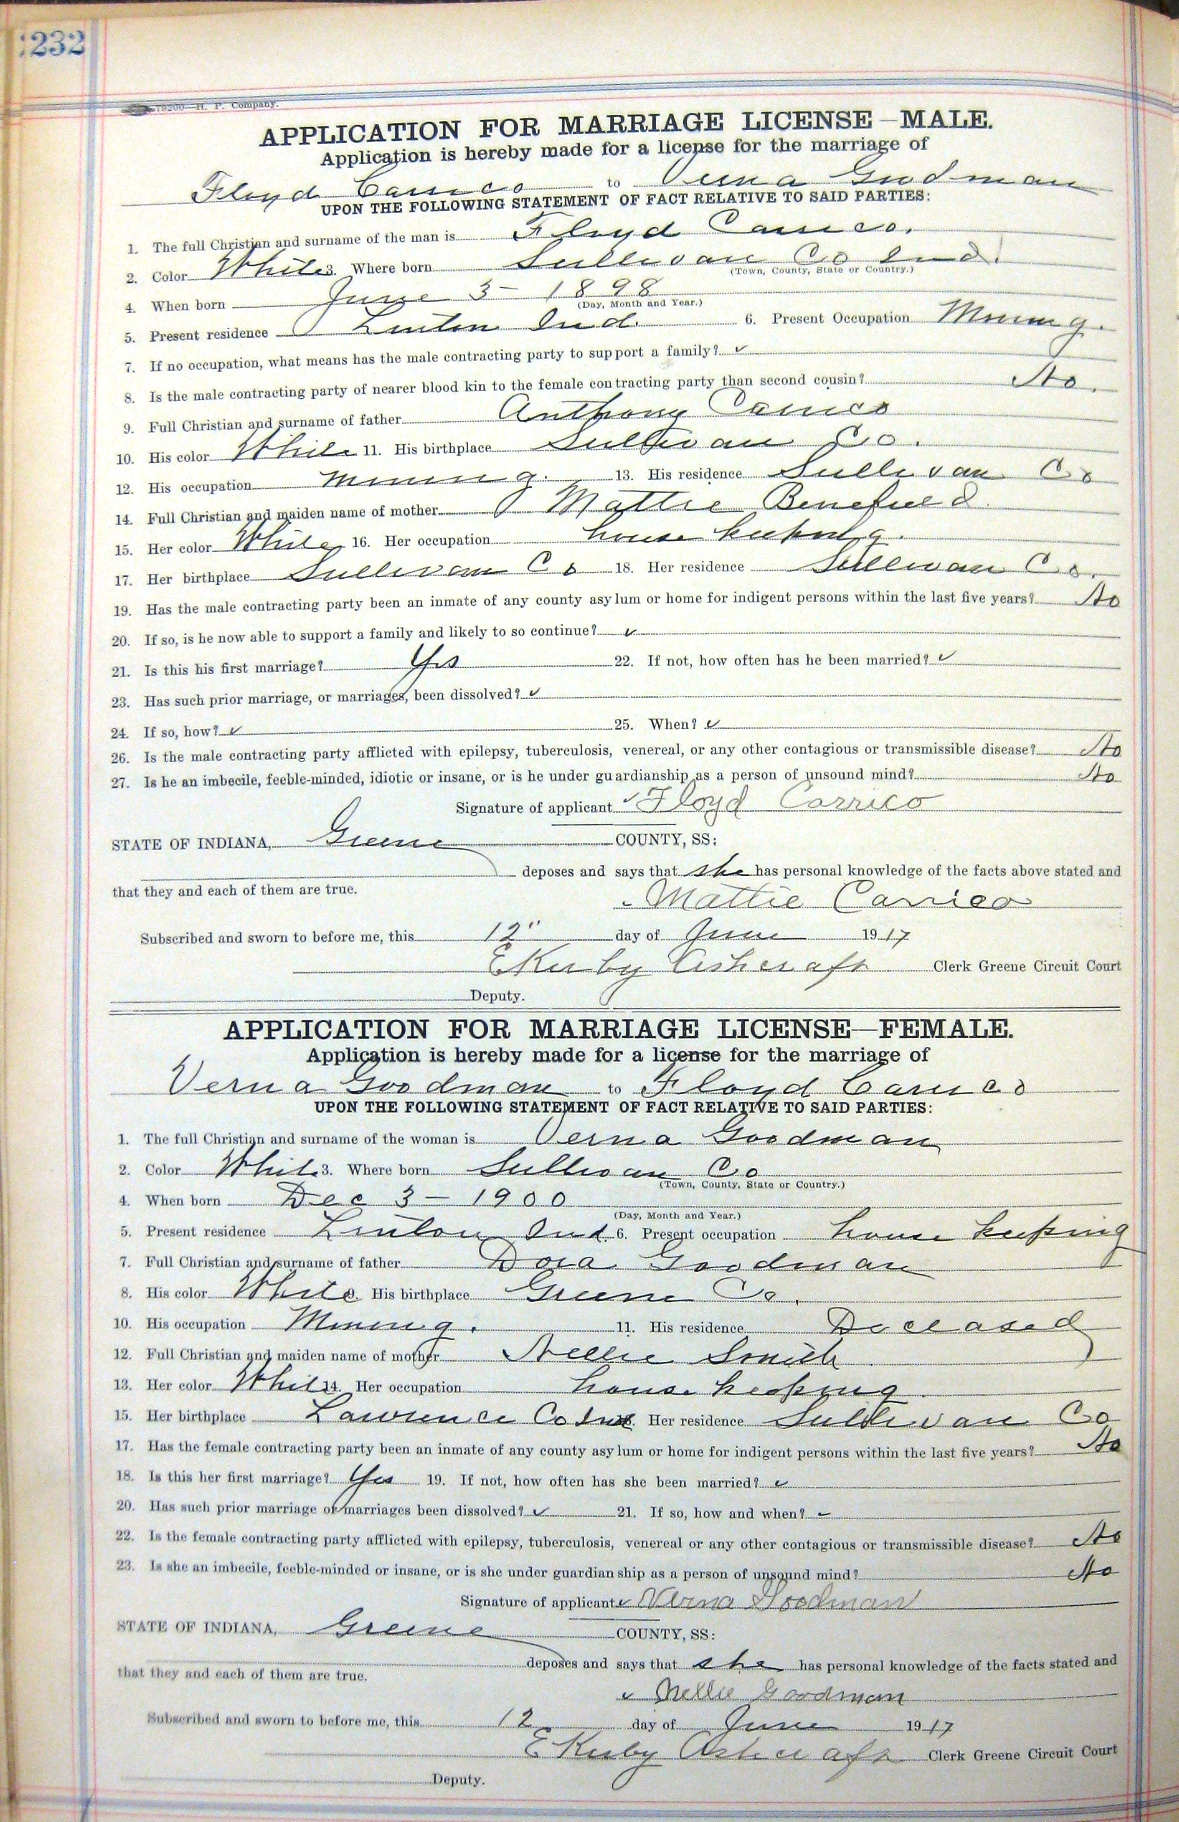 232
79200—H. P. Company.
APPLICATION FOR MARRIAGE LICENSE—MALE.
Application is hereby made for a license for the marriage of
Floyd Carrico to Verna Goodman
UPON THE FOLLOWING STATEMENT OF FACT RELATIVE TO SAID PARTIES:
1. The full Christian and surname of the man is Floyd Carrico.
2. Color White 3. Where born Sullivan Co Ind.
(Town, County, State or Country.)
4. When born June 3 - 1898
(Day, Month and Year.)
5. Present residence Linton Ind. 6. Present Occupation Mining.
7. If no occupation, what means has the male contracting party to support a family? ✓
8. Is the male contracting party of nearer blood kin to the female contracting party than second cousin? No.
9. Full Christian and surname of father Anthony Carrico
10. His color White 11. His birthplace Sullivan Co.
12. His occupation Mining. 13. His residence Sullivan Co
14. Full Christian and maiden name of mother Mattie Benefield.
15. Her color White 16. Her occupation house keeping.
17. Her birthplace Sullivan Co 18. Her residence Sullivan Co.
19. Has the male contracting party been an inmate of any county asylum or home for indigent persons within the last five years? No
20. If so, is he now able to support a family and likely to so continue? ✓
21. Is this his first marriage? Yes 22. If not, how often has he been married? ✓
23. Has such prior marriage, or marriages, been dissolved? ✓
24. If so, how? ✓ 25. When? ✓
26. Is the male contracting party afflicted with epilepsy, tuberculosis, venereal, or any other contagious or transmissible disease? No
27. Is he an imbecile, feeble-minded, idiotic or insane, or is he under guardianship as a person of unsound mind? No
Signature of applicant ✓ Floyd Carrico
STATE OF INDIANA, Greene COUNTY, SS:
deposes and says that she has personal knowledge of the facts above stated and
that they and each of them are true.
✓ Mattie Carrico
Subscribed and sworn to before me, this 12" day of June 1917
E Kirby Ashcraft Clerk Greene Circuit Court
Deputy.
APPLICATION FOR MARRIAGE LICENSE—FEMALE.
Application is hereby made for a license for the marriage of
Verna Goodman to Floyd Carrico
UPON THE FOLLOWING STATEMENT OF FACT RELATIVE TO SAID PARTIES:
1. The full Christian and surname of the woman is Verna Goodman
2. Color White 3. Where born Sullivan Co
(Town, County, State or Country.)
4. When born Dec 3 - 1900
(Day, Month and Year.)
5. Present residence Linton Ind. 6. Present occupation house keeping
7. Full Christian and surname of father Dora Goodman
8. His color White 9. His birthplace Greene Co.
10. His occupation Mining. 11. His residence Deceased
12. Full Christian and maiden name of mother Nellie Smith
13. Her color White 14. Her occupation house keeping.
15. Her birthplace Lawrence Co Ind 16. Her residence Sullivan Co
17. Has the female contracting party been an inmate of any county asylum or home for indigent persons within the last five years? No
18. Is this her first marriage? Yes 19. If not, how often has she been married? ✓
20. Has such prior marriage or marriages been dissolved? ✓ 21. If so, how and when? ✓
22. Is the female contracting party afflicted with epilepsy, tuberculosis, venereal or any other contagious or transmissible disease? No
23. Is she an imbecile, feeble-minded or insane, or is she under guardianship as a person of unsound mind? No
Signature of applicant ✓ Verna Goodman
STATE OF INDIANA, Greene COUNTY, SS:
deposes and says that she has personal knowledge of the facts stated and
that they and each of them are true.
✓ Nellie Goodman
Subscribed and sworn to before me, this 12 day of June 1917
E Kirby Ashcraft Clerk Greene Circuit Court
Deputy.